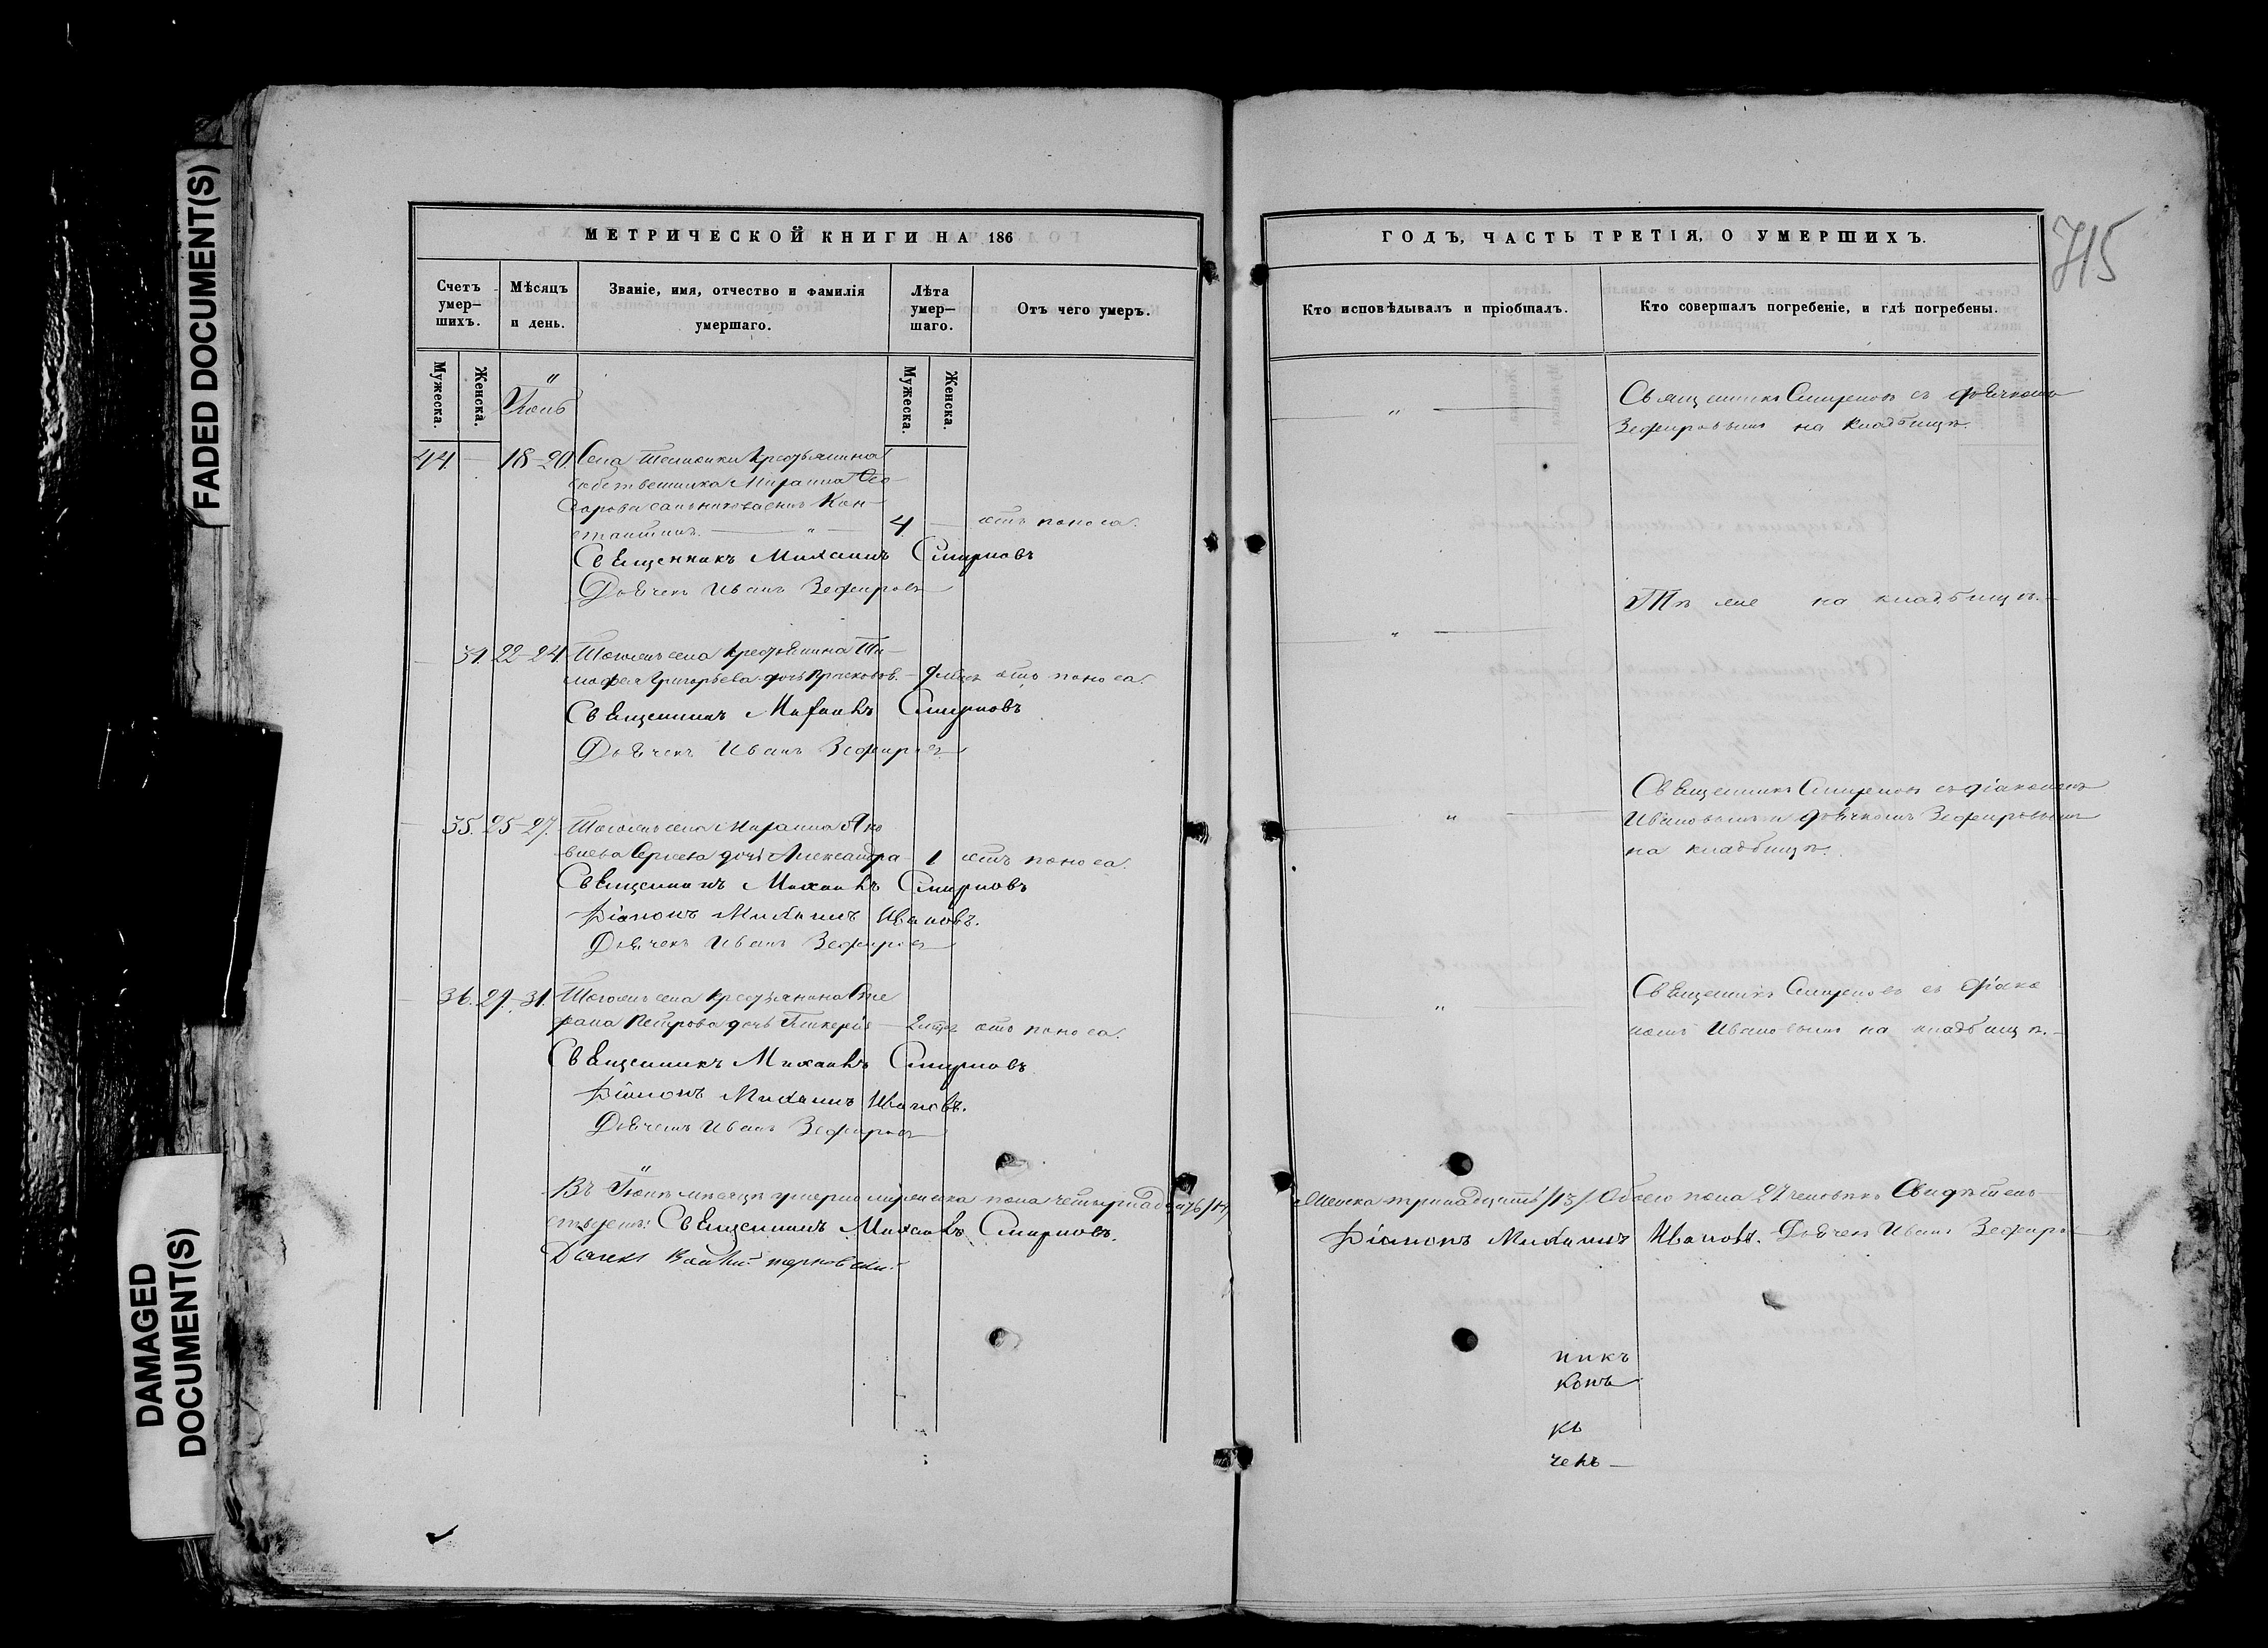 FADED DOCUMENT(S)
DAMAGED
DOCUMENT(S)
МЕТРИЧЕСКОЙ КНИГИ НА 186
Счетъ умер-шихъ.
Мѣсяцъ и день.
Званіе, имя, отчество и фамилія умершаго.
Лѣта умер-шаго.
Отъ чего умеръ.
Мужеска.
Женска.
Мужеска.
Женска.
44 18-20 Села крестьянина
собственника
4 отъ поноса.
Священникъ Михаилъ Смирновъ
Дьячекъ Иванъ Зефировъ
34. 22-24 Тогожъ села крестьянина Ти-
мофея Григорьева дочь 9 мѣс. отъ поноса.
Священникъ Михаилъ Смирновъ
Дьячекъ Иванъ Зефировъ
35. 25-27. Тогожъ села Яко
влева Сергеева дочь Александра 1 отъ поноса.
Священникъ Михаилъ Смирновъ
Діаконъ Михаилъ Ивановъ.
Дьячекъ Иванъ Зефировъ
36. 29-31. Тогожъ села крестьянина
Петрова дочь отъ поноса.
Священникъ Михаилъ Смирновъ
Діаконъ Михаилъ Ивановъ.
Дьячекъ Иванъ Зефировъ
Въ мѣсяцѣ умерло мужеска пола четырнадцать /14/
Священникъ Михаилъ Смирновъ.
ГОДЪ, ЧАСТЬ ТРЕТІЯ, О УМЕРШИХЪ.
715
Кто исповѣдывалъ и пріобщалъ.
Кто совершалъ погребеніе, и гдѣ погребены.
Священникъ Смирновъ съ дьячкомъ
Зефировымъ на кладбищѣ.
Тѣ же на кладбищѣ.
Священникъ Смирновъ съ діакономъ
Ивановымъ и дьячкомъ Зефировымъ
на кладбищѣ.
Священникъ Смирновъ съ діако
номъ Ивановымъ на кладбищѣ.
Женска тринадцать /13/ Обоего пола 27 человѣкъ Свидѣтель
Діаконъ Михаилъ Ивановъ. Дьячекъ Иванъ Зефировъ
никъ
конъ
къ
чекъ